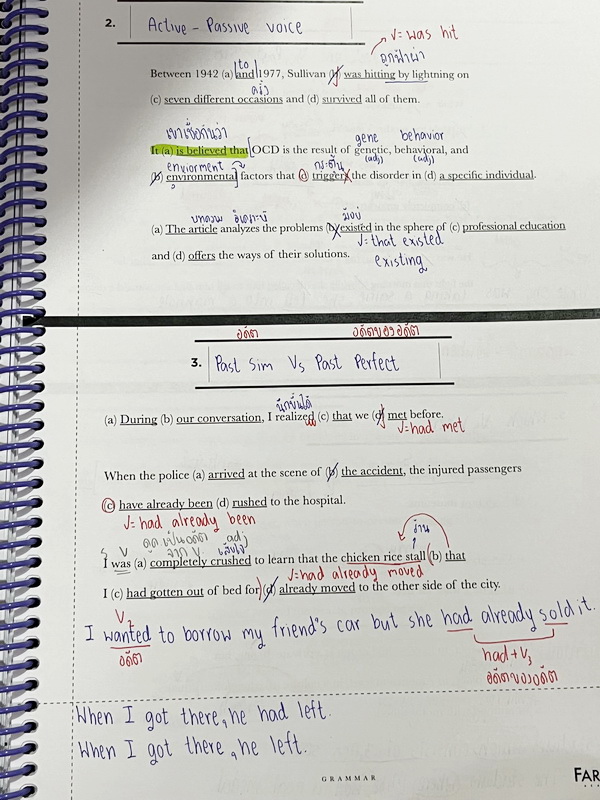 2. Active - Passive voice
V = was hit
to
ถูกฟ้าผ่า
Between 1942 (a) and 1977, Sullivan (b) was hitting by lightning on
ครั้ง
(c) seven different occasions and (d) survived all of them.
เขาเชื่อกันว่า
gene behavior
It (a) is believed that [OCD is the result of genetic, behavioral, and
(adj) (adj)
enviorment กระตุ้น
(b) environmental] factors that (c) triggers the disorder in (d) a specific individual.
บทความ วิเคราะห์ มีอยู่
(a) The article analyzes the problems (b) existed in the sphere of (c) professional education
V = that existed
and (d) offers the ways of their solutions.
existing
อดีต อดีตของอดีต
3. Past Sim Vs Past Perfect
นึกขึ้นได้
(a) During (b) our conversation, I realized (c) that we (d) met before.
V = had met
When the police (a) arrived at the scene of (b) the accident, the injured passengers
(c) have already been (d) rushed to the hospital.
V = had already been
S V adj ร้าน
จาก V. เสียใจ
I was (a) completely crushed to learn that the chicken rice stall (b) that
V = had already moved
I (c) had gotten out of bed for (d) already moved to the other side of the city.
V2
I wanted to borrow my friend's car but she had already sold it.
อดีต
had + V3
อดีตของอดีต
When I got there, he had left.
When I got there, he left.
GRAMMAR
FAR